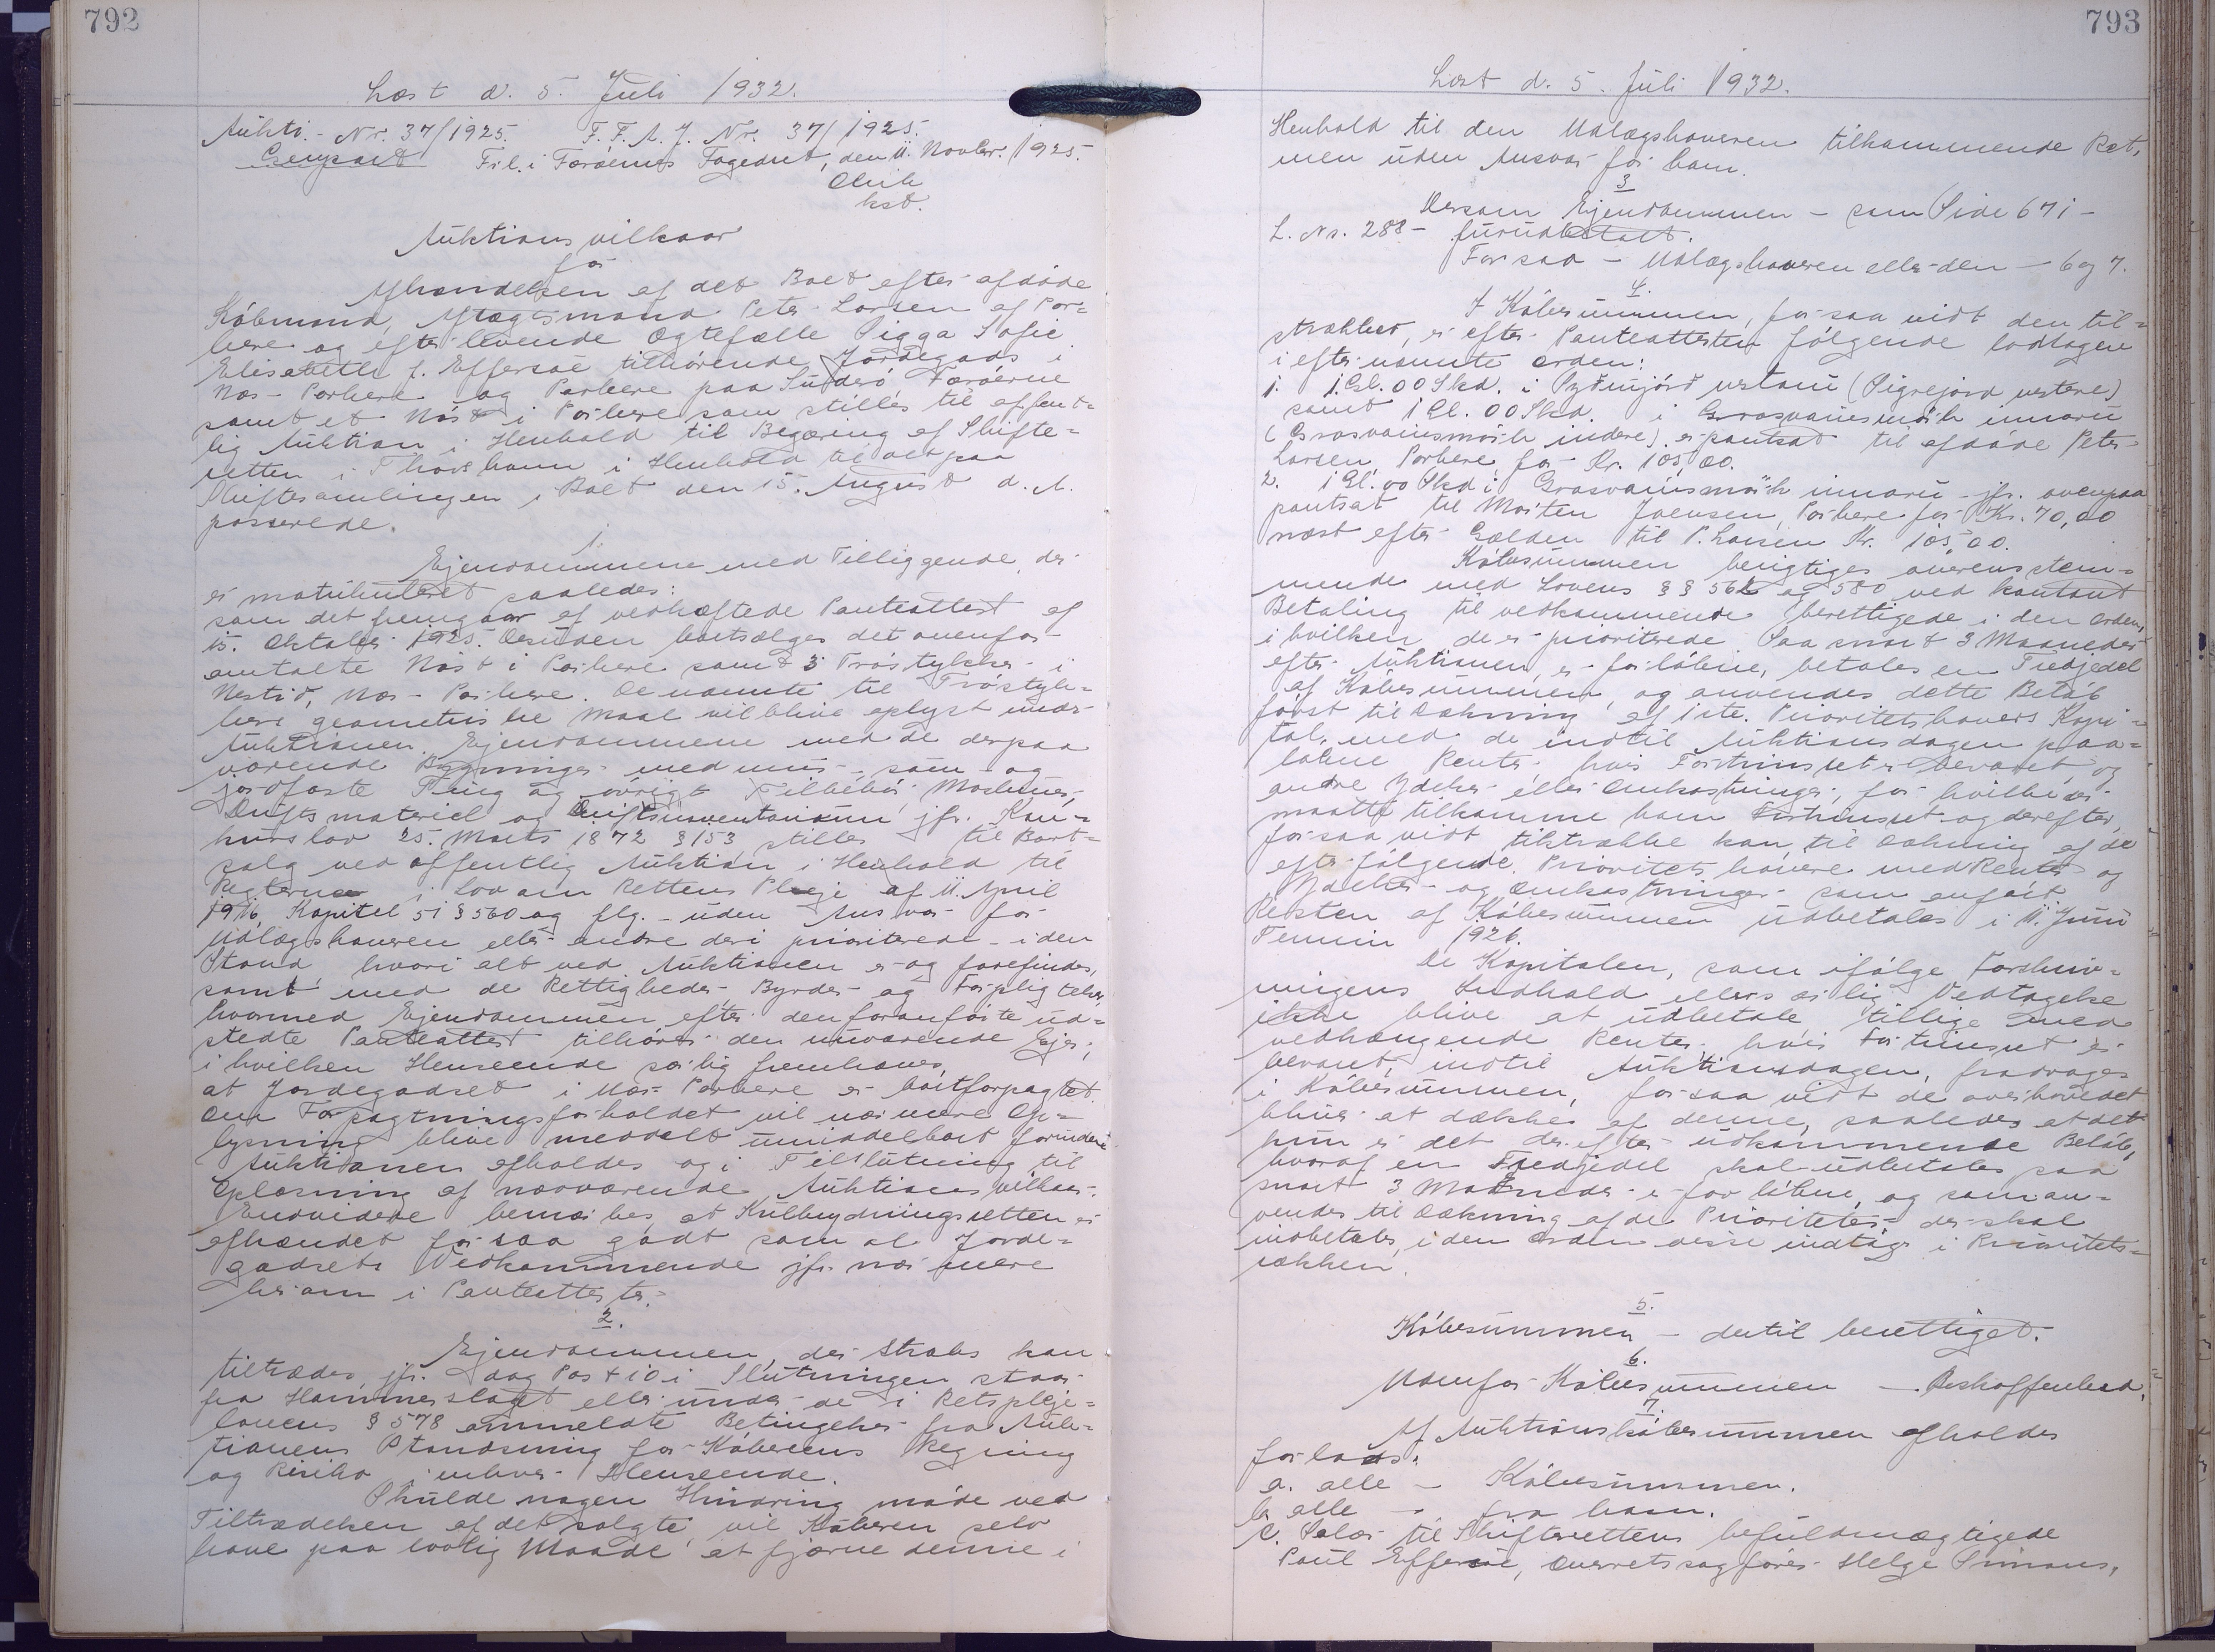 792
Læst d. 5. Juli 1932.
Aukti.- Nr. 37/1925. F. F. A. J. Nr. 37/1925.
Genpart Frl. i Færøernes Fogedret, den 11. Novbr. 1925.
kst.
Auktionsvilkaar
for
Afhændelsen af det Boet efter afdøde
Købmand, Aftægtsmand Peter Larsen af Por=
kere og efterlevende Ægtefælle Sigga Sofie
Elisabeth f. Effersøe tilhørende Jordegods i
Næs - Porkere og Porkere paa Suderø Færøerne
samt et Nøst i Porkere som stilles til offent=
lig Auktion i Henhold til Begæring af Skifte=
retten i Thorshavn i Henhold til det paa
Skiftesamlingen i Boet den 15. August d. A.
passerede.
1.
Ejendommene med Tilliggende, der
er matrikuleret saaledes:
som det fremgaar af vedhæftede Panteattest af
15. Oktober 1925. Desuden bortsælges det ovenfor
omtalte Nøst i Porkere samt 3 Trøstykker i
Nestið, Næs - Porkere. De nævnte til Trøstyk=
kers geometriske Maal vil blive oplyst under
Auktionen. Ejendommene med de derpaa
værende Bygninger med mur-, søm- og
jordfaste Ting og øvrigt Tilbehør, Maskiner,
Driftsmateriel og Driftsinventarium jfr. Kon=
kurslov 25. Marts 1872 §153, stilles til Bort=
salg ved offentlig Auktion i Henhold til
Reglerne i Lov om Rettens Pleje af 11. April
1916 Kapitel 51 § 560 og flg. - uden Ansvar for
Udlægshaveren eller andre deri prioriterede - i den
Stand, hvori alt ved Auktionen er og forefindes,
samt med de Rettigheder, Byrder og Forpligtelser,
hvormed Ejendommen efter den foranførte ud=
stedte Panteattest tilhører den nuværende Ejer,
i hvilken Henseende særlig fremhæves,
at Jordegodset i Næs - Porkere er bortforpagtet.
Om Forpagtningsforholdet vil nærmere Op=
lysning blive meddelt umiddelbart forinden
Auktionen afholdes og i Tilslutning til
Oplæsning af nærværende Auktionsvilkaar.
Endvidere bemærkes, at Kulbrydningsretten er
afhændet for saa godt som al Jorde=
godsets Vedkommende jfr. nærmere
herom i Panteattesten.
2.
Ejendommen, der straks kan
tiltrædes, jfr. dog Post 10 i Slutningen staar
fra Hammerslaget eller under de i Retspleje=
lovens § 578 ommeldte Betingelser fra Auk=
tionens Standsning for Køberens Regning
og Risiko i enhver Henseende.
Skulde nogen Hindring møde ved
Tiltrædelsen af det solgte, vil Køberen selv
have paa lovlig Maade at fjærne denne i
793
Læst d. 5. Juli 1932.
Henhold til den Udlægshaveren tilkommende Ret,
men uden Ansvar for ham.
3
Dersom Ejendommen - som Side 671 -
L. Nr. 288 - forudbetalt.
Forsaa - Udlægshaveren eller den - 6 og 7.
4.
I Købesummen, forsaa vidt den til=
strækker, er efter Panteattesten følgende lodtagen
i efternævnte Orden:
1. 1 Gl. 00 Skd. i Syðrujørð vestaru (Sigrejord vestere)
samt 1 Gl. 00 Skd. i Grasvansmørk innaru
(Grasvansmørk indere) er pantsat til afdøde Peter
Larsen, Porkere for Kr. 105,00.
2. 1 Gl. 00 Skd i Grasvansmørk innaru - jfr. ovenpaa
pantsat til Morten Joensen, Porkere for Kr. 70,00
næst efter Gælden til P. Larsen Kr. 105,00.
Købesummen berigtiges overensstem=
mende med Lovens § § 561 og 580 ved kontant
Betaling til vedkommende berettigede i den Orden,
i hvilken de er prioriterede. Saa snart 3 Maaneder
efter Auktionen er forløbne, betales en Tredjedel
af Købesummen, og anvendes dette Beløb
først til Dækning af 1ste. Prioritetshavers Kapi=
tal, med de indtil Auktionsdagen paa=
løbne Renter, hvis Fortrinsret er bevaret, og
andre Ydelser eller Omkostninger, for hvilke der
maatte tilkomme ham Fortrinsret og derefter,
forsaa vidt tilstrække kan, til Dækning af de
efterfølgende Prioritetshavere med Renter og
Ydelser og Omkostninger som anført.
Resten af Købesummen udbetales i 11. Juni
Termin 1926.
De Kapitaler, som ifølge Forskriv=
ningens Indhold eller særlig Vedtagelse
ikke blive at udbetale tillige med
vedhængende Renter, hvis Fortrinsret er
bevaret, indtil Auktionsdagen, fradrages
i Købesummen, forsaa vidt de overhovedet
bliver at dække af denne, saaledes at det
kun er det derefter udkommende Beløb,
hvoraf en Tredjedel skal udbetales saa
snart 3 Maaneder er forløbne, og som an=
vendes til Dækning af de Prioriteter, der skal
indbetales, i den Orden disse indtage i Prioritets=
rækken.
5.
Købesummen - dertil berettiget.
6.
Udenfor Købesummen - Beskaffenhed.
7.
Af Auktionskøbesummen afholdes
forlods:
a. alle - Købesummen.
b. alle - fra ham.
c. Salær til Skifterettens befuldmægtigede
Poul Effersøe, Overretssagfører Helge Simons,